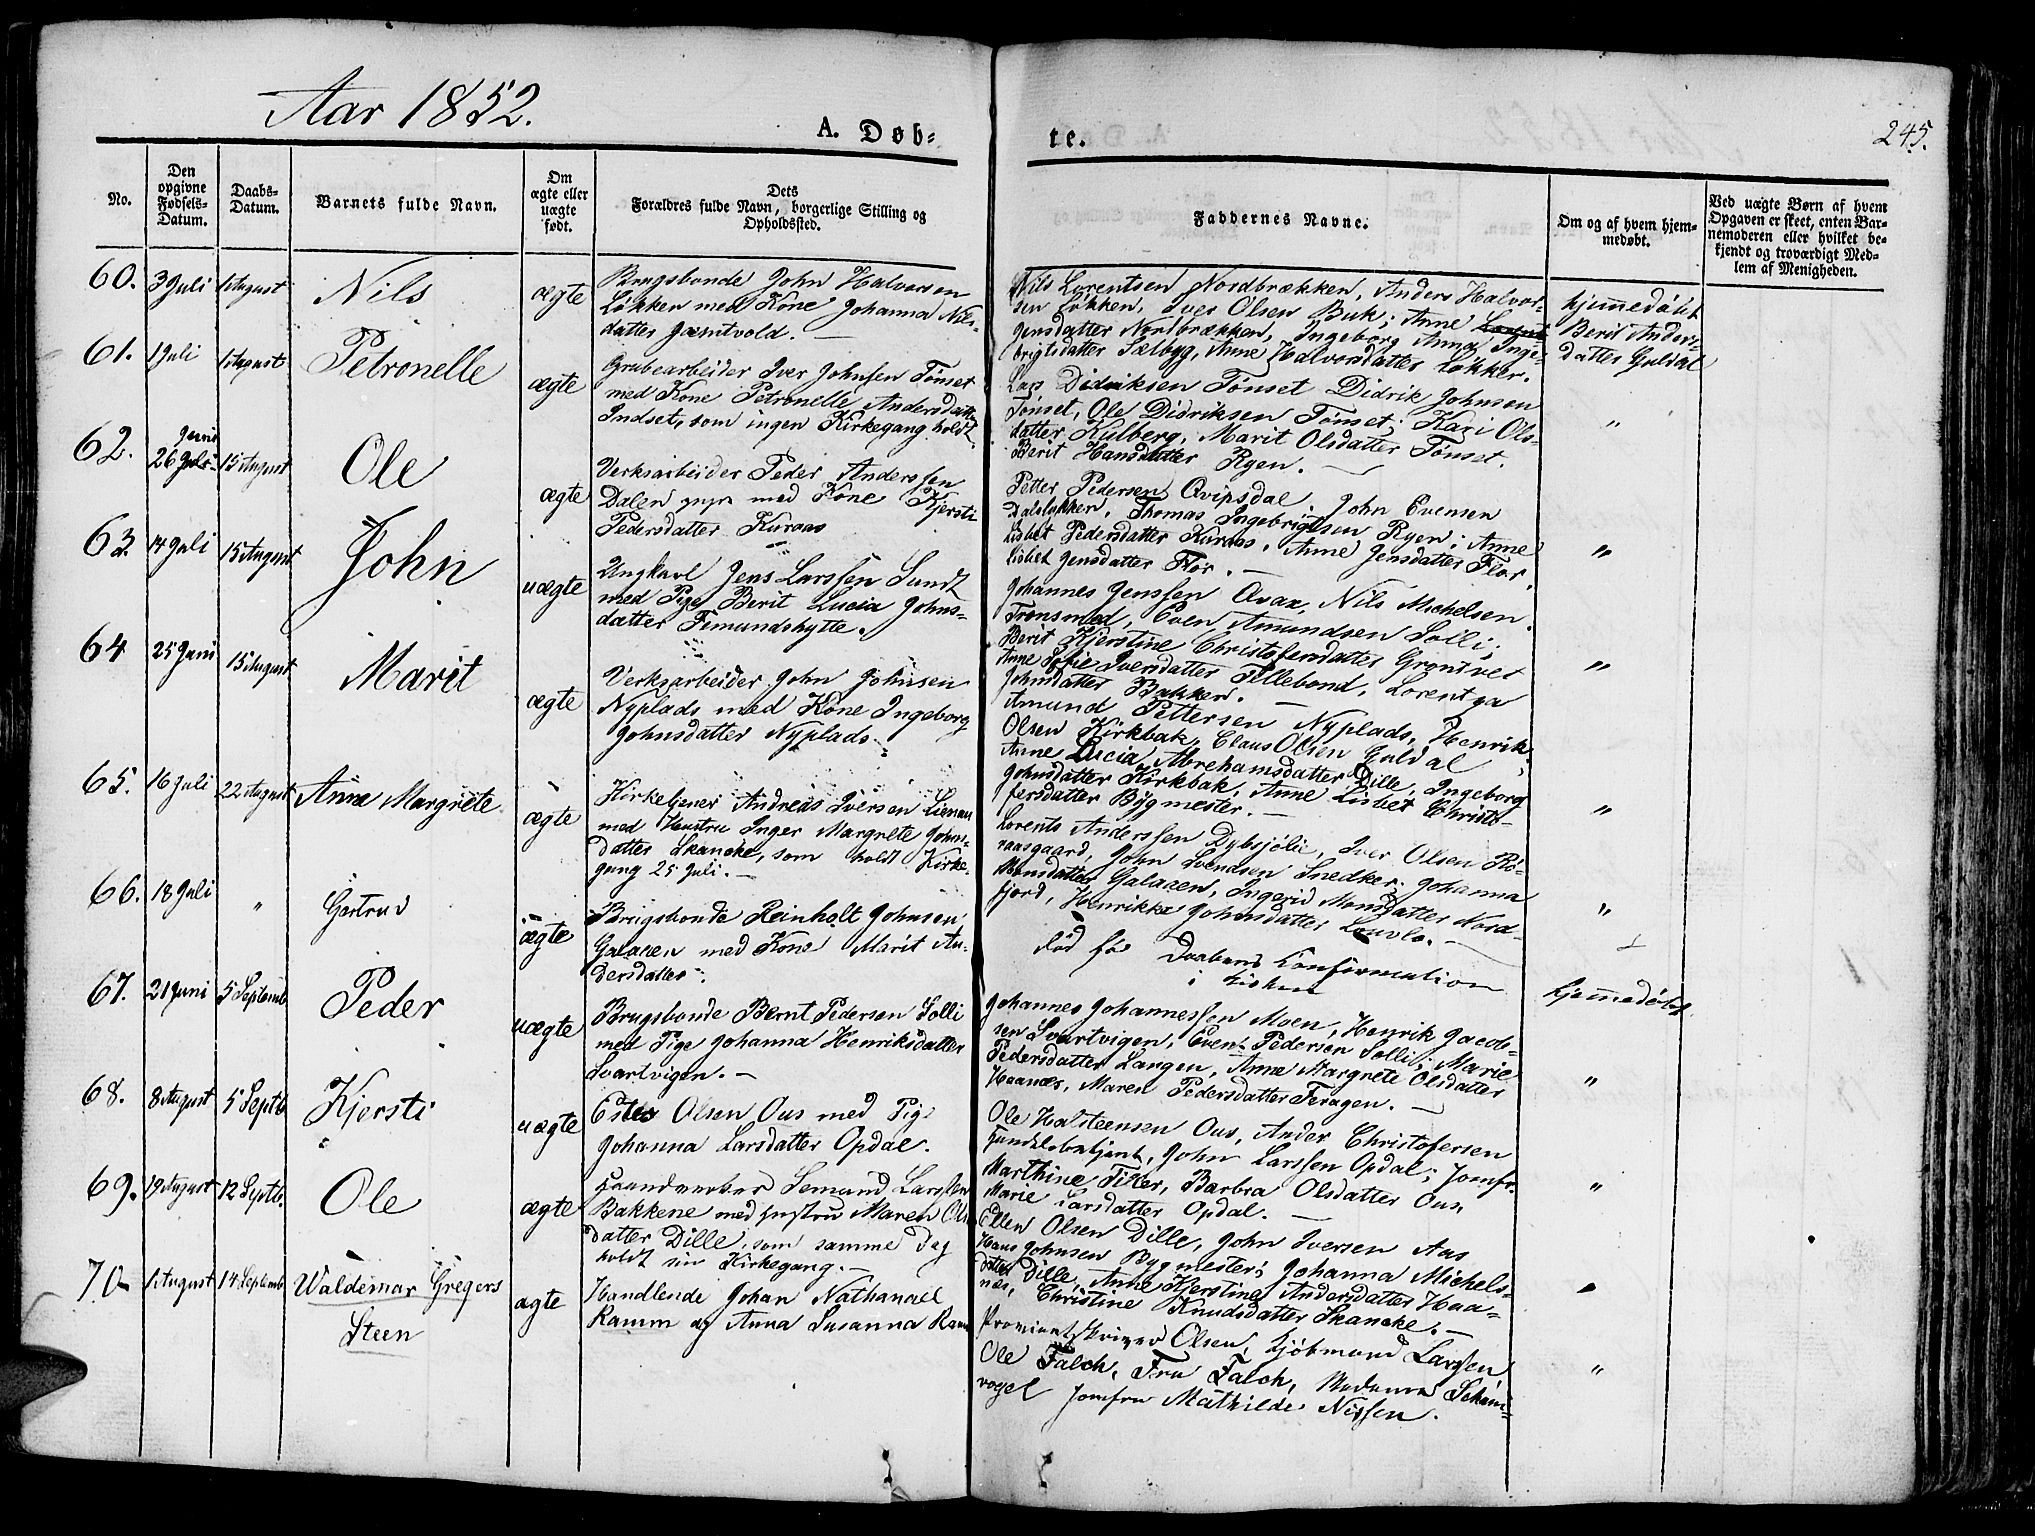 Aar 1852.
A. Døb-
te.
245.
No.
Den opgivne Fødsels-Datum.
Daabs-Datum.
Barnets fulde Navn.
Om ægte eller uægte født.
Dets Forældres fulde Navn, borgerlige Stilling og Opholdssted.
Faddernes Navne.
Om og af hvem hjemmedøbt.
Ved uægte Børn af hvem Opgaven er skeet, enten Barnemoderen eller hvilket bekjendt og troværdigt Medlem af Menigheden.
60. 3 Juli 1 August Nils ægte
Brugsbonde John Halvorsen
Løkken med Kone Johanna Nils-
datter Jamtvold. —
Nils Lorentsen Nordbrækken, Anders Halvor-
sen Løkken, Iver Olsen Buk; Anne
Jensdatter Nordbrækken, Ingeborg Anna Inge-
brigtsdatter Sælbyg, Anne Halvorsdatter Løkken.
hjemmedøbt
Berit Anders-
datter Guldal
61. 1 Juli 1 August Petronelle ægte
Grubearbeider Iver Johnsen Tønset
med Kone Petronelle Andersdatter
Indset, som ingen Kirkegang holdt
Lars Didriksen Tønset Didrik Johnsen
Tønset, Ole Didriksen Tønset; Kari Ols-
datter Kulberg, Marit Olsdatter Tønset.
Berit Hansdatter Ryen. —
"
62. 26 Juni 15 August Ole ægte
Verksarbeider Peder Anderssen
Dalen med Kone Kjersti
Pedersdatter Kuraas
Petter Pedersen Qvipsdal, John Evensen
Dalsløkken, Thomas Ingebrigtsen Ryen; Anne
Lisbet Pedersdatter Kuraas, Anne Jensdatter Flor,
Lisbet Jensdatter Flor. —
"
63. 14 Juli 15 August John uægte
Ungkarl Jens Larssen Sundt
med Pige Berit Lucia Johns-
datter Femundshytte.
Johannes Jenssen Qvax, Nils Michelsen
Tronsmed, Even Amundsen Solli;
Berit Kjerstine Christofersdatter Grøntvet
Anne Sofie Iversdatter Tellebond, Lorentza
Johnsdatter Bakken. —
"
64 25 Juni 15 August Marit ægte
Verksarbeider John Johnsen
Nyplads med Kone Ingeborg
Johnsdatter Nyplads.
Amund Pettersen Nyplads, Henrik
Olsen Kirkbak, Claus Olsen Guldal
Anne Lucia Abrehamsdatter Dille, Ingeborg
Johnsdatter Kirkbak, Anne Lisbet Christo-
fersdatter Bygmester. —
"
65. 16 Juli 22 August Anne Margrete ægte
Kirketjener Andreas Iversen Lienau
med Hustru Inger Margrete Johns-
datter Skancke, som holdt Kirke-
gang 25 Juli. —
Lorents Anderssen Dybsjølie, Iver Olsen Rø-
raasgaard, John Svendsen Snedker; Johanna
Monsdatter Galaaen, Ingerid Monsdatter Nord-
fjord, Henrikke Johnsdatter
"
66. 18 Juli " Gertrud ægte
Brugsbonde Reinholt Johnsen
Galaaen med Kone Marit An-
dersdatter.
død før Daabens Confirmation
i Kirken
67. 21 Juni 5 Septemb Peder uægte
Brugsbonde Bernt Pedersen Solli
med Pige Johanna Henriksdatter
Svartvigen. —
Johannes Johannessen Moen, Henrik Jacob-
sen Svartvigen, Even Pedersen Solli; Marie
Pedersdatter Langen, Anne Margrete Olsdatter
Haanæs, Maren Pedersdatter Feragen. —
hjemmedøbt
"
68. 8 August 5 Septb Kjersti uægte
Olsen Ous med Pige
Johanna Larsdatter Opdal.
Ole Halsteensen Ous, Ander Christofersen
John Larssen Opdal; Jomfr.
Marthine Barbra Olsdatter Ous,
Marie Larsdatter Opdal. —
"
69. 19 August 12 Septb. Ole ægte
Haandverker Semund Larssen
Bakkene med Hustru Maren Ols
datter Dille, som samme Dag
holdt sin Kirkegang. —
Ellen Olsen Dille, John Iversen Aas
Hans Johnsen Bygmester; Johanna Michels-
datter Dille, Anne Kjerstine Andersdatter Haa-
næs, Christine Knudsdatter Skancke. —
70 1 August 14 Septemb Waldemar Gregers
Steen
ægte
Handlende Johan Nathanael
Ramm og Anna Susanna Ramm
Proviantskriver Olsen, Kjøbmand Larssen,
Ole Falch, Fru Falch, Madame Scham-
vogel Jomfru Mathilde Nissen.
"